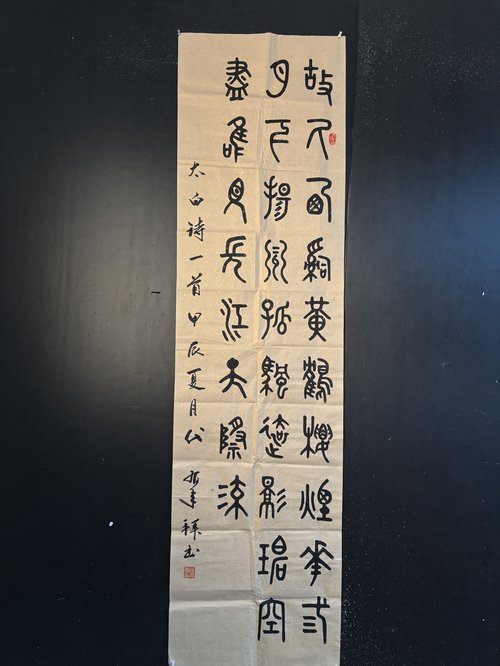 故人西辭黃鶴樓煙華弎
月下揚州孤颿遠影碧空
盡唯見長江天際流
太白诗一首甲辰夏月 书